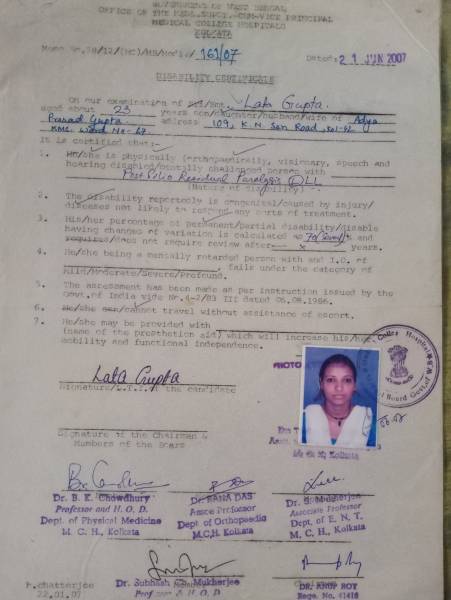 GOVERNMENT OF WEST BENGAL
OFFICE OF THE MEDL. SUPDT.-CUM-VICE PRINCIPAL
MEDICAL COLLEGE HOSPITALS
KOLKATA
Memo No. 161/07
Dated: 21 JUN 2007
DISABILITY CERTIFICATE
On our examination of Lata Gupta
aged about 23 years son/daughter/husband/wife of Adya
Prasad Gupta address 109, K.N. Sen Road, Kol-42
KMC Ward No-67
It is certified that :-
1. He/she is physically (orthopaedically, visionary, speech and
hearing disabled/mentally challenged person with
Post Polio Residual Paralysis
(Nature of disability).
2. The disability reportedly is congenital/caused by injury/
diseases not likely to respond any sorts of treatment.
3. His/her percentage of permanent/partial disability/disable
having changes of variation is calculated as 70 % and
required/does not require review after x years.
4. He/she being a mentally retarded person with and I.Q. of
falls under the category of
Mild/Moderate/Severe/Profound.
5. The assessment has been made as per instruction issued by the
Govt. of India vide No. 4-2/83 III dated 06.08.1986.
6. He/she can/cannot travel without assistance of escort.
7. He/she may be provided with
(name of the prosthetion aid) which will increase his/her
mobility and functional independence.
Lata Gupta
Signature/L.T.I. of the candidate
PHOTO
Signature of the Chairman &
Members of the Board
Kolkata
Dr. B. K. Chowdhury
Professor and H. O. D.
Dept. of Physical Medicine
M. C. H., Kolkata
Dr. RAHA DAS
Assoc Professor
Dept of Orthopaedic
M.C.H. Kolkata
Mukherjee
Associate Professor
Dept. of E. N. T.
M. C. H., Kolkata
P.chatterjee
22.01.07
Dr. Subhash Ch. Mukherjee
Prof & H. O. D
Dr. ANUP ROY
Regs. No. 41416